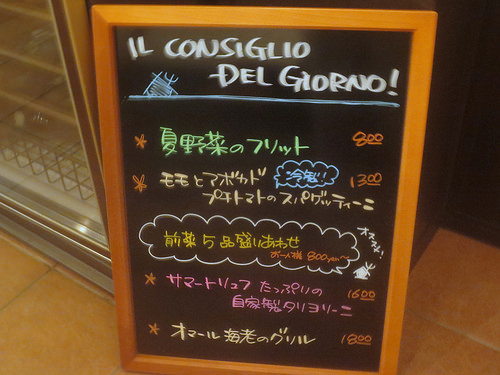 IL CONSIGLIO
DEL GIORNO!
夏野菜のフリット 800
冷製!!
モモとアボカド 1300
プチトマトのスパゲッティーニ
前菜5品盛りあわせ
お一人様 800yen〜
オススメ!
サマートリュフ たっぷりの
自家製タリヨリーニ 1600
オマール海老のグリル 1800